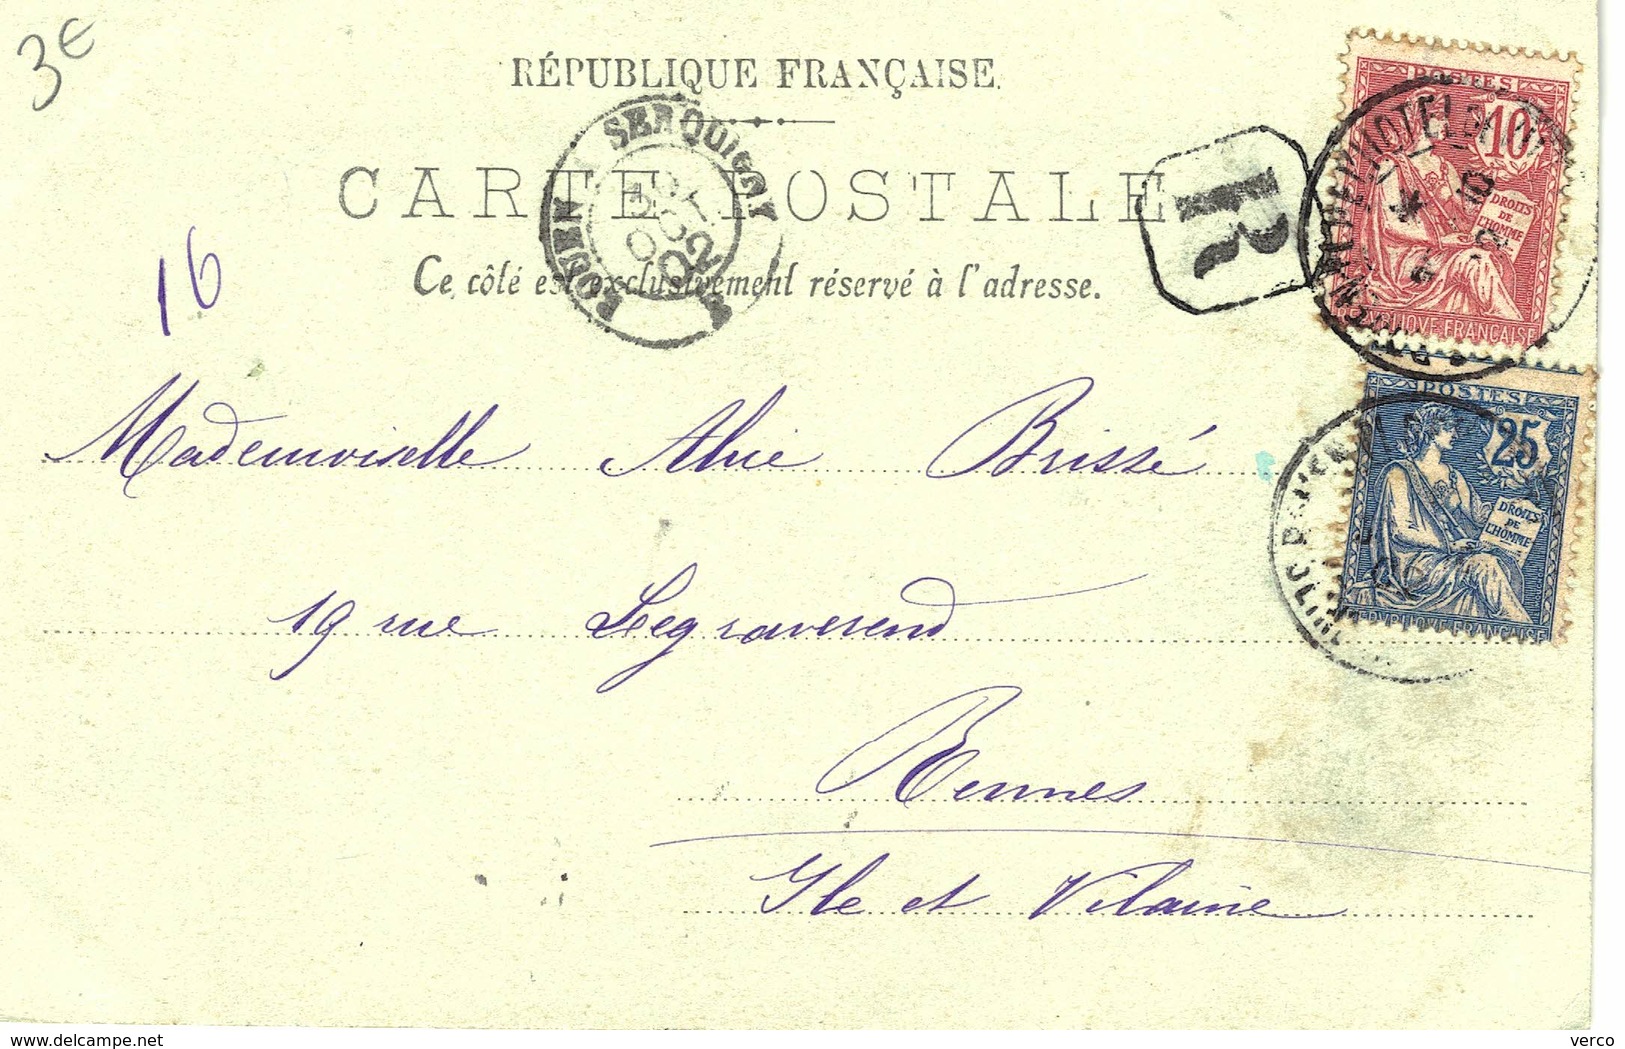 3€
RÉPUBLIQUE FRANÇAISE
CARTE POSTALE
Ce côté est exclusivement réservé à l'adresse.
ROUEN A SERQUIGNY
OCT
02
R
16
POSTES
10
DROITS
DE
L'HOMME
REPUBLIQUE FRANÇAISE
POSTES
25
DROITS
DE
L'HOMME
REPUBLIQUE FRANÇAISE
Mademoiselle Alice Brissé
19 rue Legraverend
Rennes
Ile et Vilaine
www.delcampe.net
verco